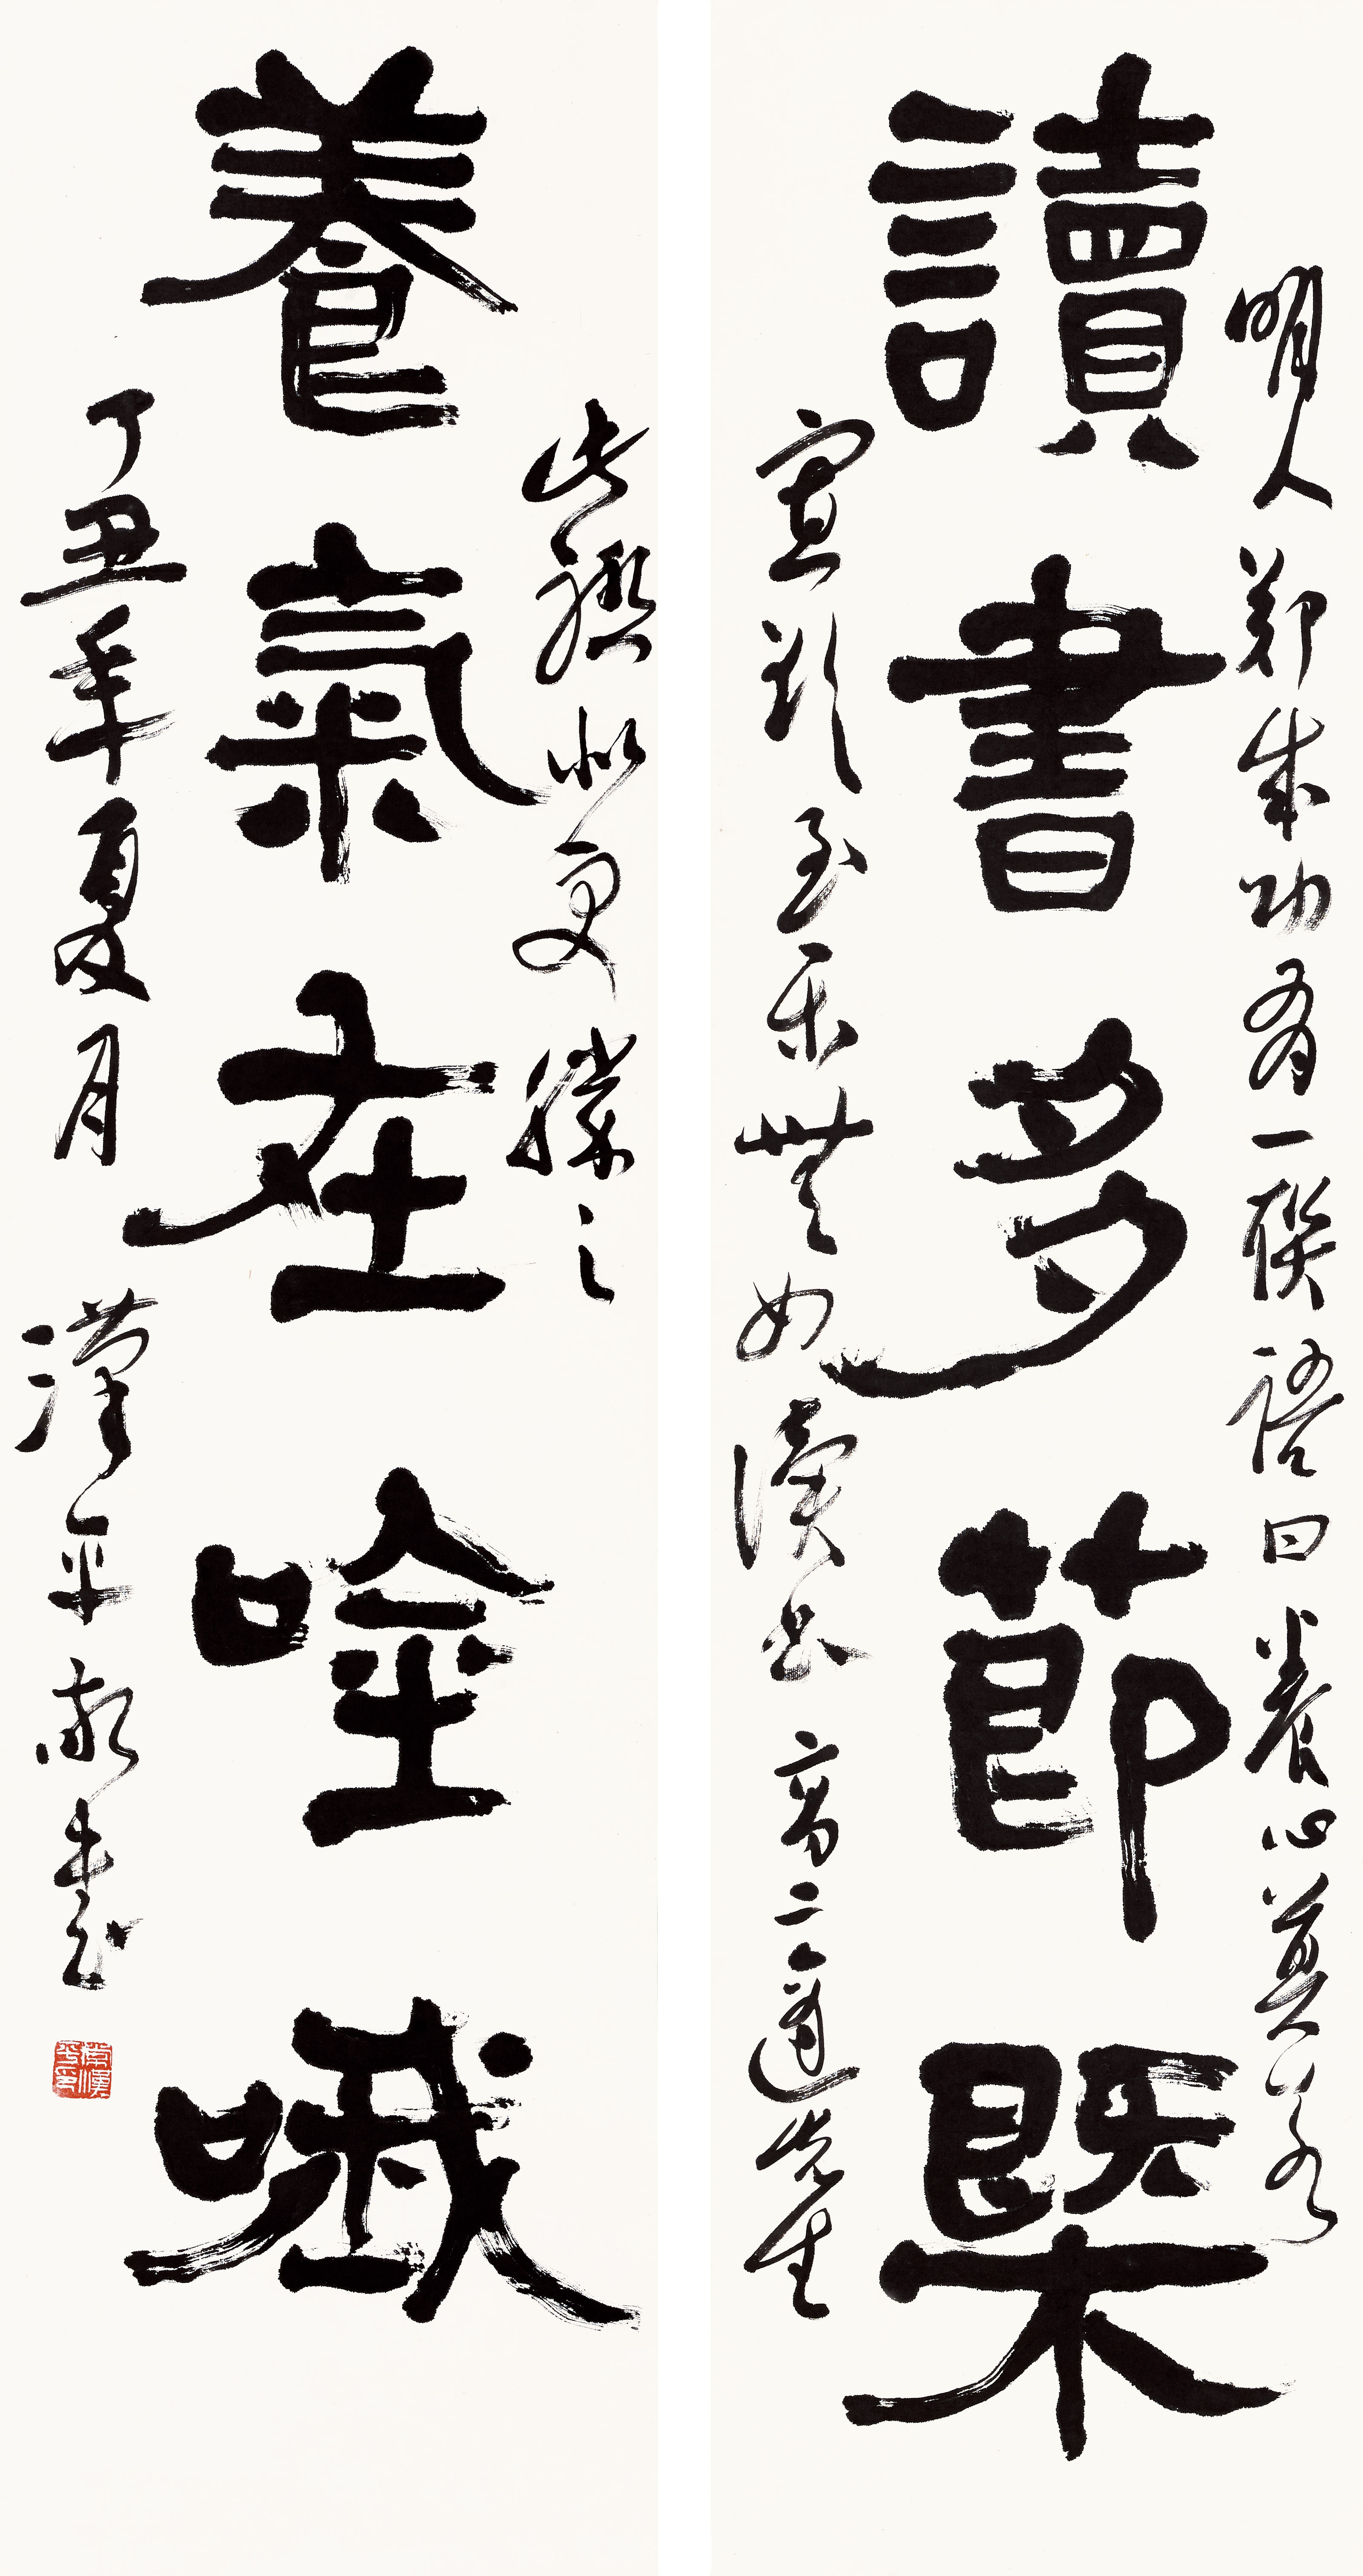 明人鄭成功有一聯語曰養心莫若
讀書多節槩
寡欲至樂無如讀書高二適先生
此聯似更勝之
養氣在唫哦
丁丑年夏月漢平敬書